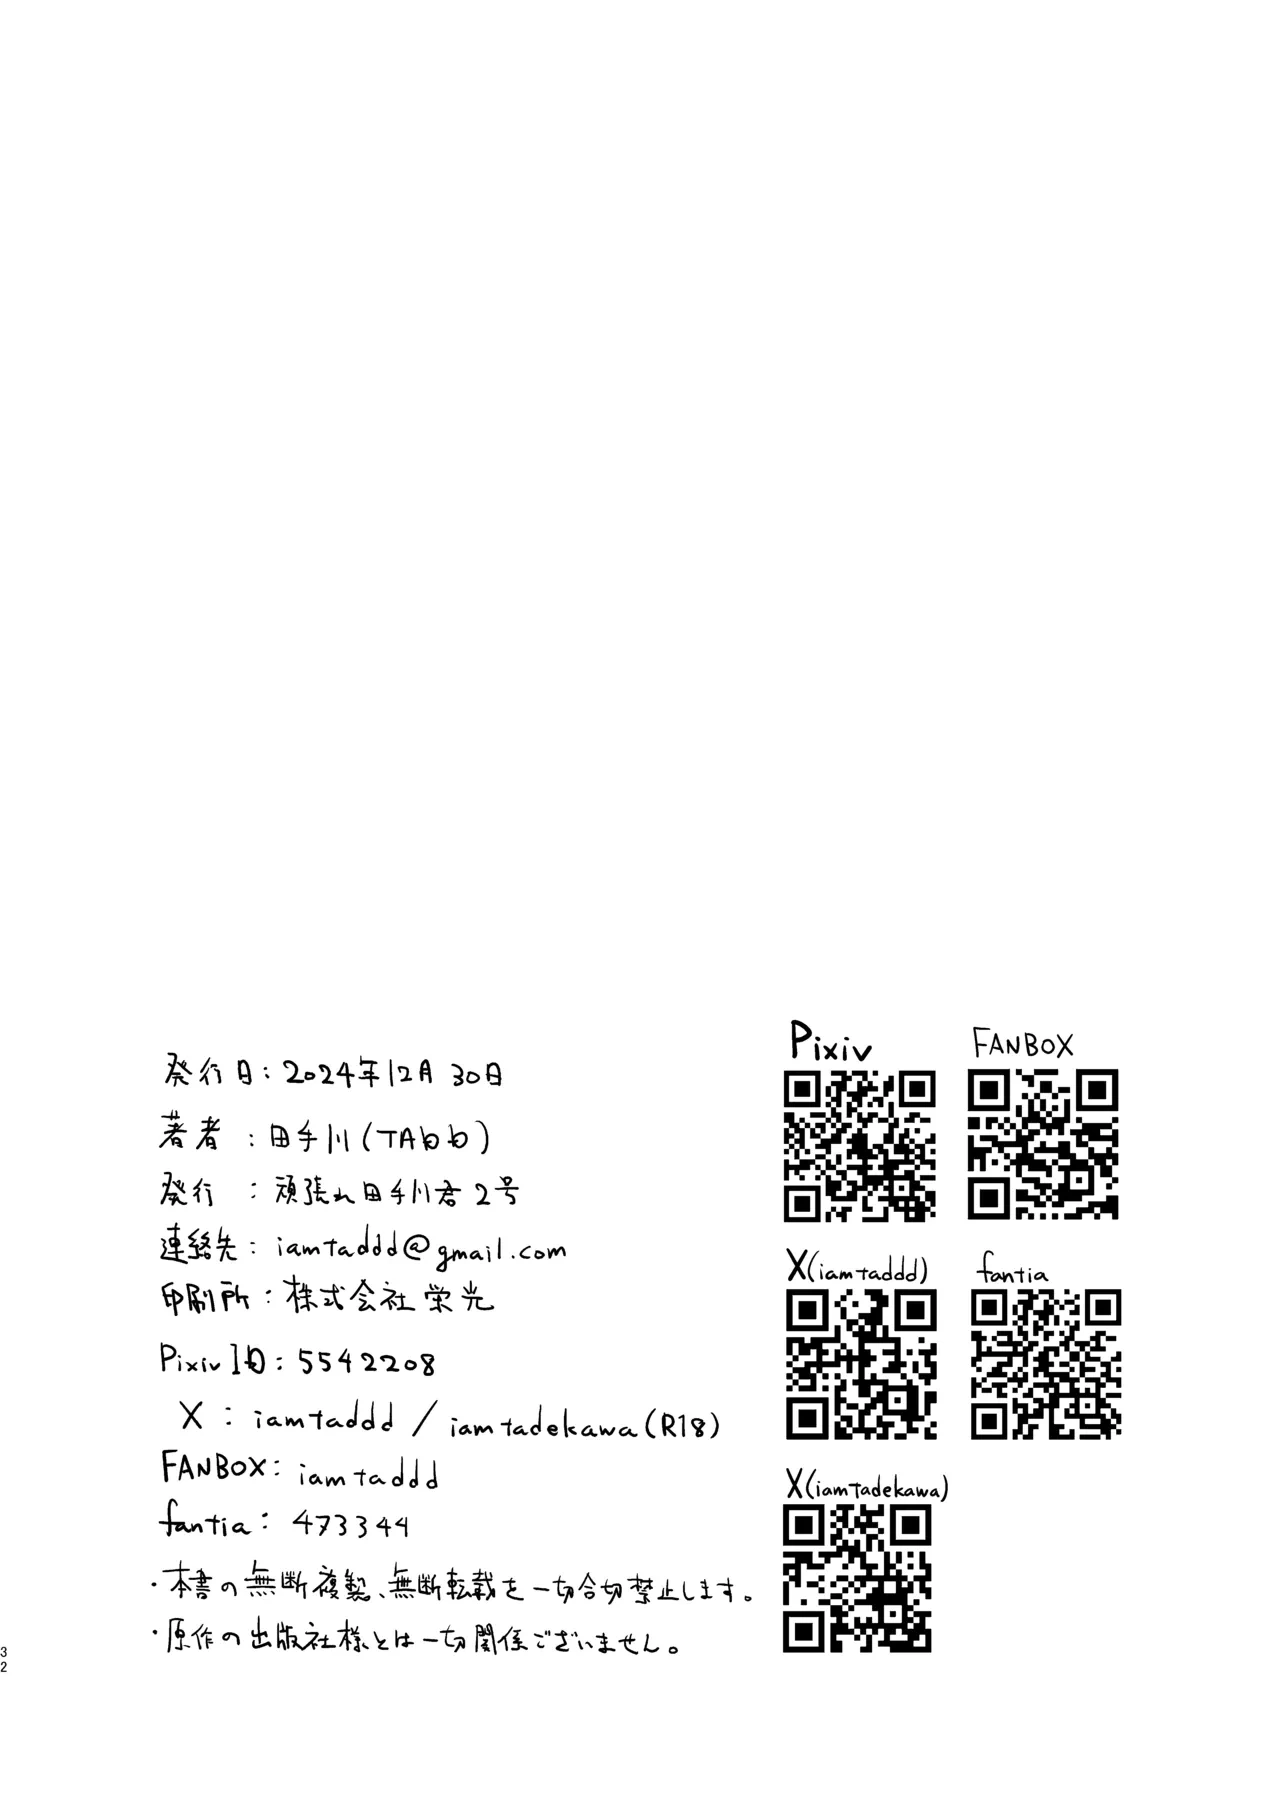 発行日：2024年12月30日
著者：田手川(TAbb)
発行：頑張れ田手川君2号
連絡先：iamtaddd@gmail.com
印刷所：株式会社栄光
Pixiv ID：5542208
X：iamtaddd / iamtadekawa(R18)
FANBOX：iamtaddd
fantia：473344
・本書の無断複製、無断転載を一切合切禁止します。
・原作の出版社様とは一切関係ございません。
Pixiv
FANBOX
X(iamtaddd)
fantia
X(iamtadekawa)
32